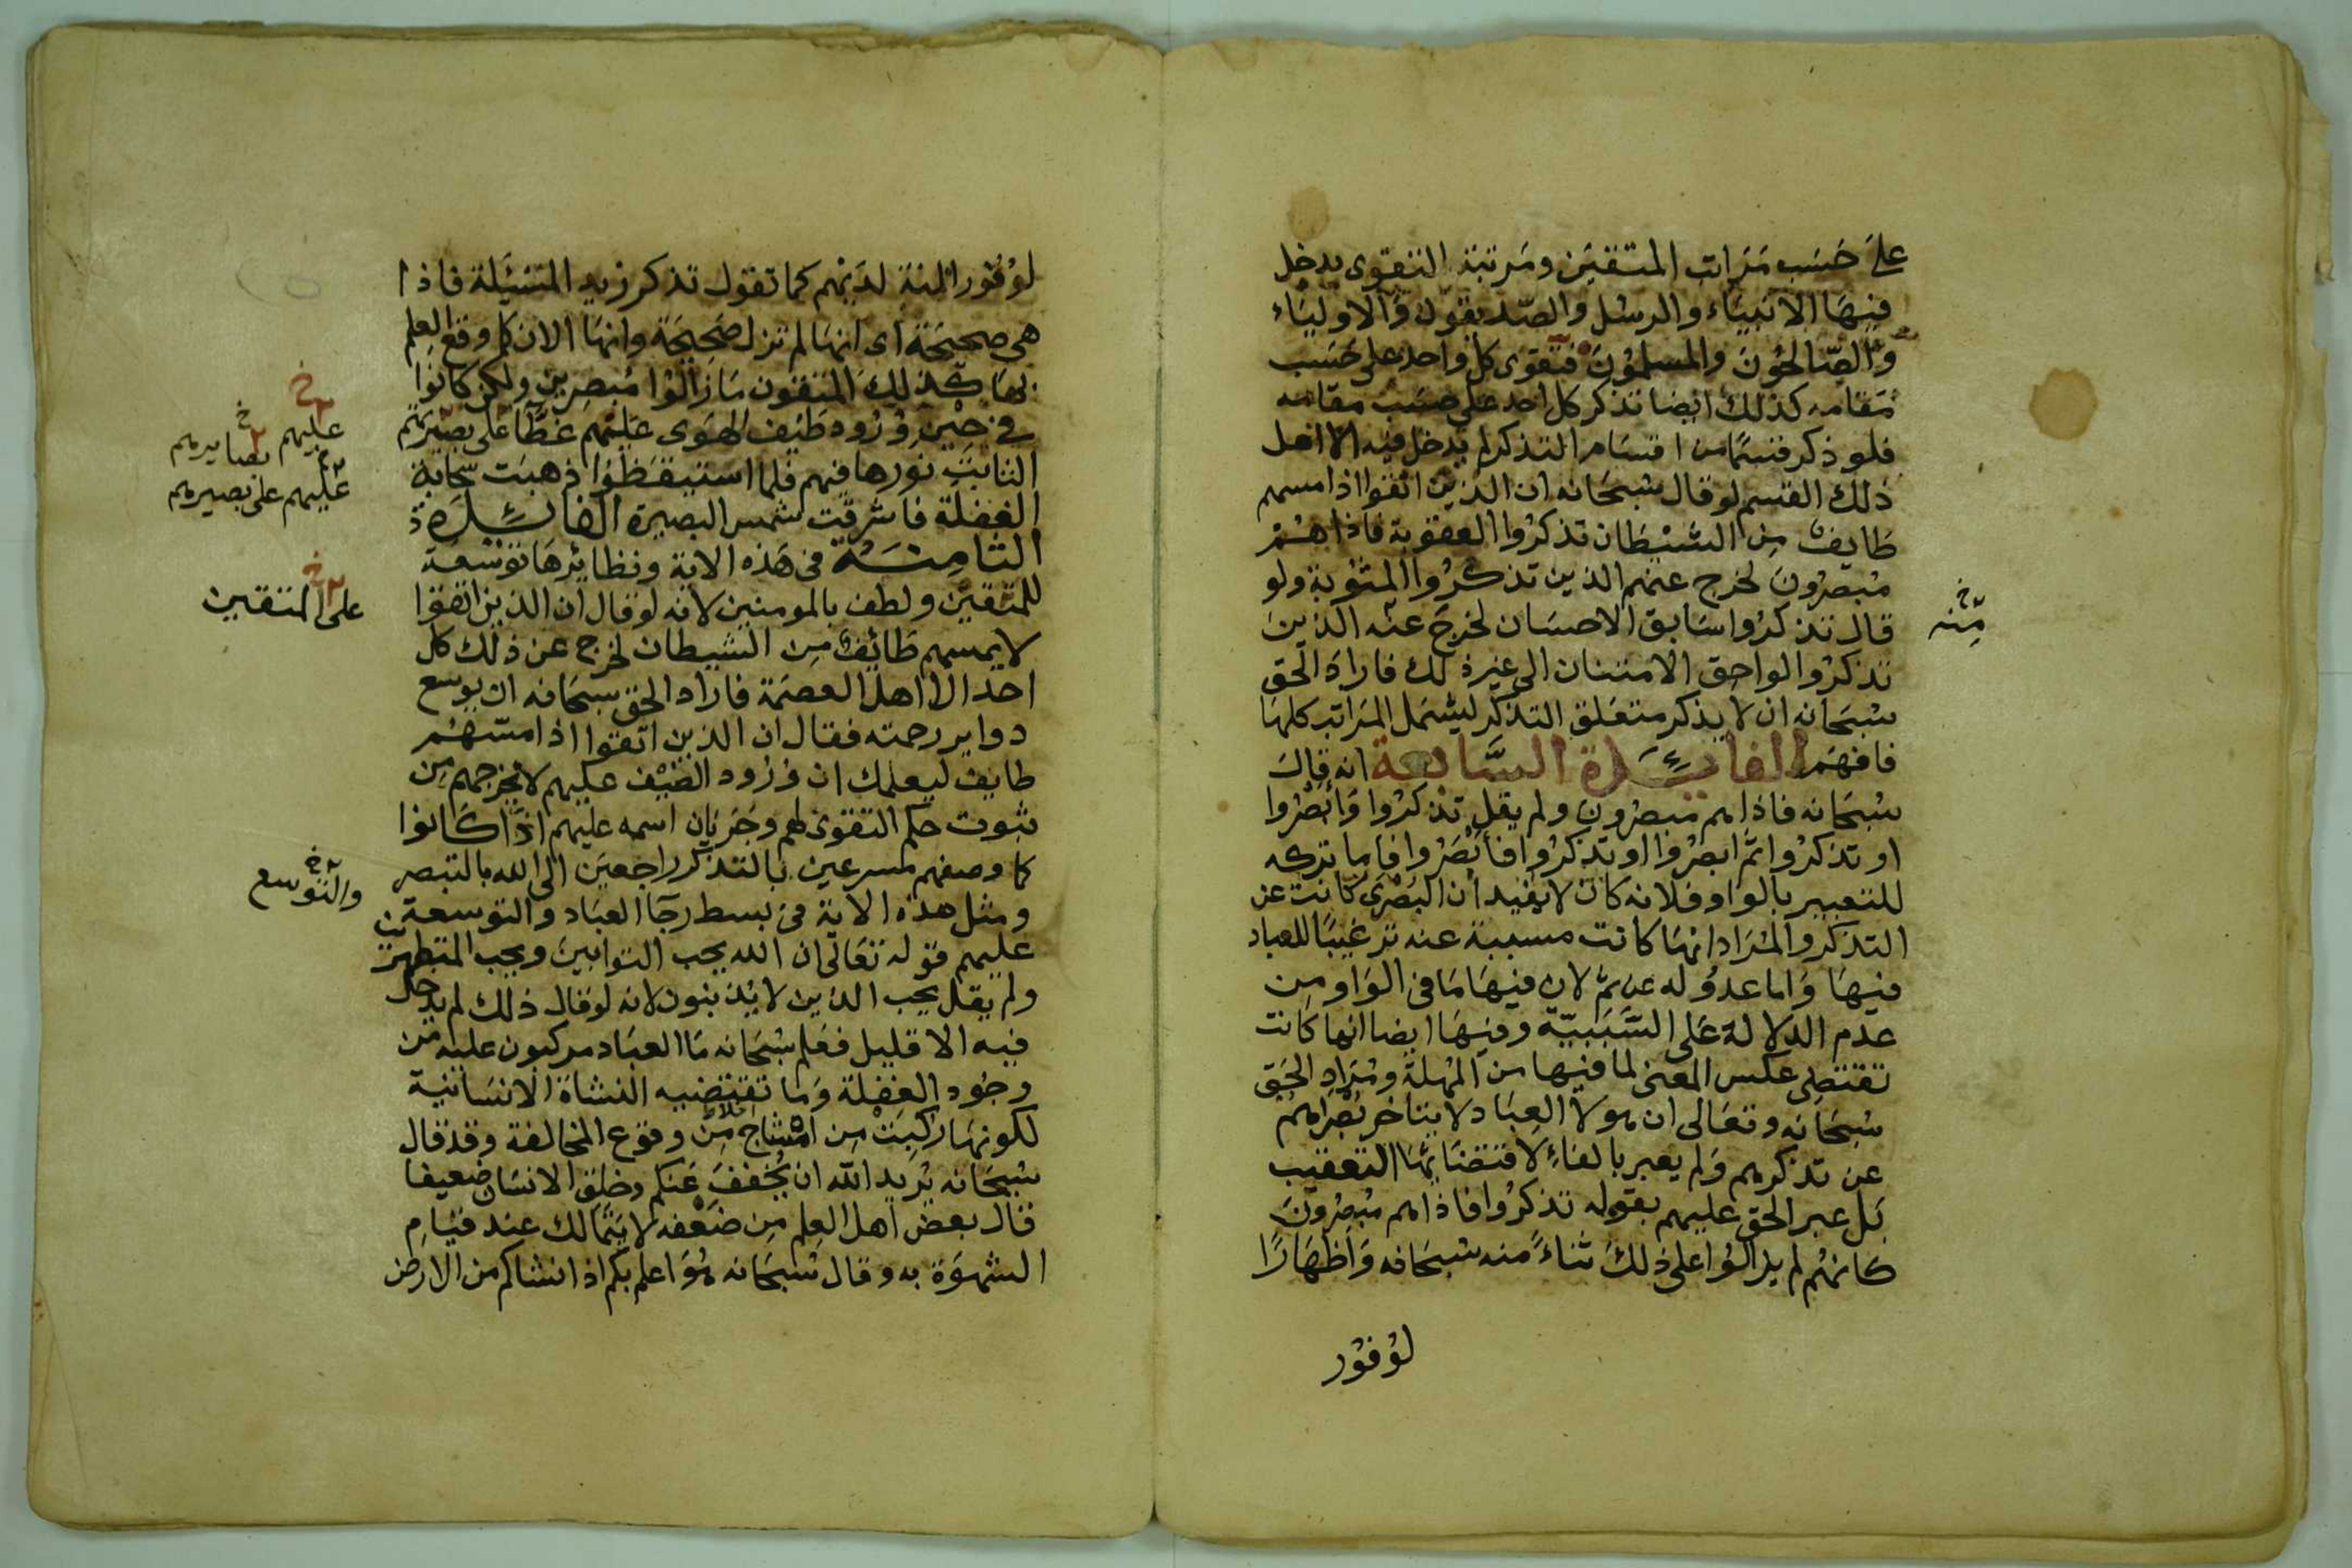 على حَسَب مَرَاتب المتقين ومَرتبَة التقوى يدخل
فيهَا الانبيَاء والرسُل والصّديقون وَالاوليَاء
وَالصّالحُونَ والمسلمُونَ فتقوى كل واحد على حَسَب
مَقامه كذلك ايضا تذكر كل احد على حسَب مقامه
فلو ذكر قسمًا من اقسَام التذكر لم يدخل فيه الا اهل
ذلك القسم لو قال سُبحَانه ان الذين اتقوا اذا مسهم
طَايف مِن الشيْطَان تذكرُوا العقوبة فاذا هُمْ
مُبصرُونَ لخرج عنهم الذين تذكرُوا المثُوبة ولو
قال تذكرُوا سَابق الاحسَان لخرجَ عنه الذينَ
تذكرُوا لواحق الامتنان الى غير ذلك فارادَ الحق
سُبحَانه ان لا يذكر متعَلق التذكر ليشمل المَرَاتب كلهَا
فافهَم الفائِدَة السَّابعة انه قالَ
سُبحَانه فاذا هم مبصرُون ولم يقل تذكرُوا وَابْصَرُوا
او تذكرُوا ثم ابصَرُوا او تذكرُوا فأبْصَرُوا فاما تركه
للتعبير بالواو فلانه كان لا يفيد ان البَصْرَى كانت عن
التذكر والمُرَاد انهَا كانت مسببة عنه ترغيبًا للعباد
فيهَا وَاما عدوُله عن ثمَّ لان فيهَا مَا في الوَاو مِن
عدم الدلالة عَلى السَّبَبيّة وفيهَا ايضا انها كانت
تقتضى عكس المعنى لما فيها من المُهلة ومُرَادِ الحَق
سُبحَانه وتعَالى ان هولا العِبَاد لا يتاخر بَصْرَاهم
عن تذكرهم وَلم يعبر بالفاءِ لاقتضَائهَا التعقيب
بَل عبر الحق عليهم بقوله تذكرُوا فاذا هم مُبصرُونَ
كانهُم لم يزالوا على ذلكَ ثناءً منه سُبحَانه وَاظهَارًا
لوُفوُر
مِّنه خ
لوُفوُر المنة لدَيْهم كما تقول تذكر زيد المَسْئَلة فاذا
هي صحيحَة اى انهَا لم تزل صَحِيحَة وانهَا الان كما وقع العِلم
بهَا كذلِكَ المتقون مَا زَالوُا مُبصِرين ولكن كانوا
في حِيْنِ وُرُود طَيْف الهَوَى عَليْهم غطَّا على بصيْرتهم
الثابت نورها فيهم فلما استيقظوا ذهبَت سحَابة
الغفلة فاشرقت شمس البصيرة الفائِدَة
الثامِنَة في هَذه الاية ونظائرهَا توْسعَة
للمتقيْن ولطف بالمومنين لانه لو قال ان الذين اتقوا
لا يمسهم طَائفٌ مِن الشيطان لخرج عن ذلك كل
احد الا اهل العصمَة فاراد الحق سبحَانه ان يوسع
دواير رحمته فقال ان الذين اتقوا اذا مسّهُم
طايف ليعلمك ان وُرُود الطيْف عليهم لا يخرجهم من
ثبوت حكم التقوى لهم وجَريَان اسمه عليهم اذا كَانوا
كما وصفهم مسرعين بالتذكر راجعيَن الى الله بالتبصر
ومثل هذه الاية في بسط رجَا العبَاد والتوسعة
عليهم قوله تعَالى ان الله يحب التوابين ويحب المتطهرين
ولم يقل يحب الذين لا يُذنبون لانه لو قال ذلك لم يدخل
فيه الا قليل فعَلم سُبحَانه مَا العبَاد مركبون عليه من
وجُود الغفلة وَما تقتضيه النشاة الانسَانية
لكونهَا ركِبَتْ مِن امْشاج مِن وقوع المخالفة وقد قال
سُبحَانه يُريد الله ان يُخفِفَ عَنكم وخلق الانسَان ضعيفا
قال بعض اهل العلم مِن ضَعْفه لا يَتمَالك عند قيَام
الشهوَة به وقال سُبحَانه هُوَ اعلم بكم اذ انشاكم من الارض
عليهم خ بصايرهم خ
عليهم على بصيرهم
على المتقين خ
والتوسع خ